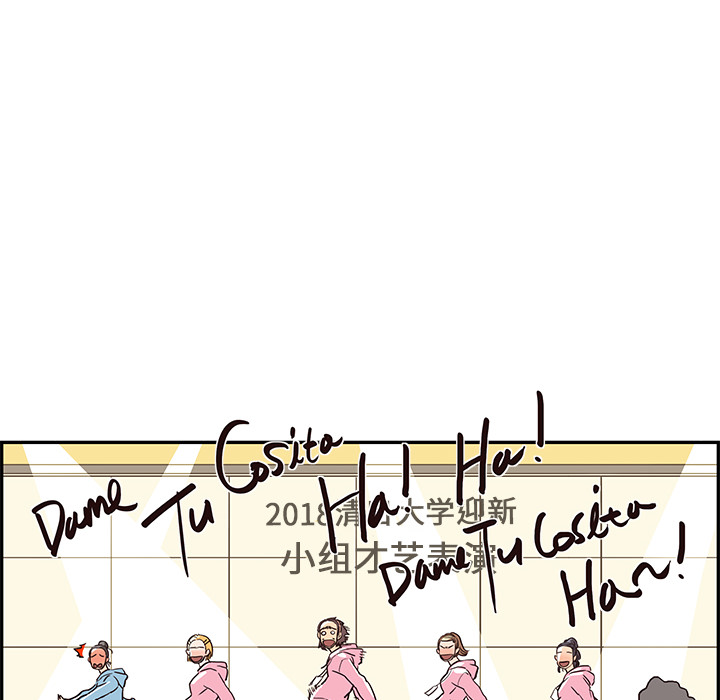 Dame Tu Cosita
Ha! Ha!
2018清 大学迎新
小组才艺表演
Dame Tu Cosita
Ha~!